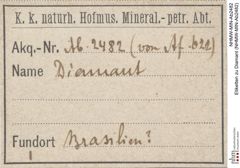 K. k. naturh. Hofmus. Mineral.-petr. Abt.
Akq.-Nr. Ab. 2482 (von Af. 621)
Name Diamant
Fundort Brasilien?
NHMW-MIN-Ab2482
Etiketten zu Diamant (NHMW-MIN-Ab2482)